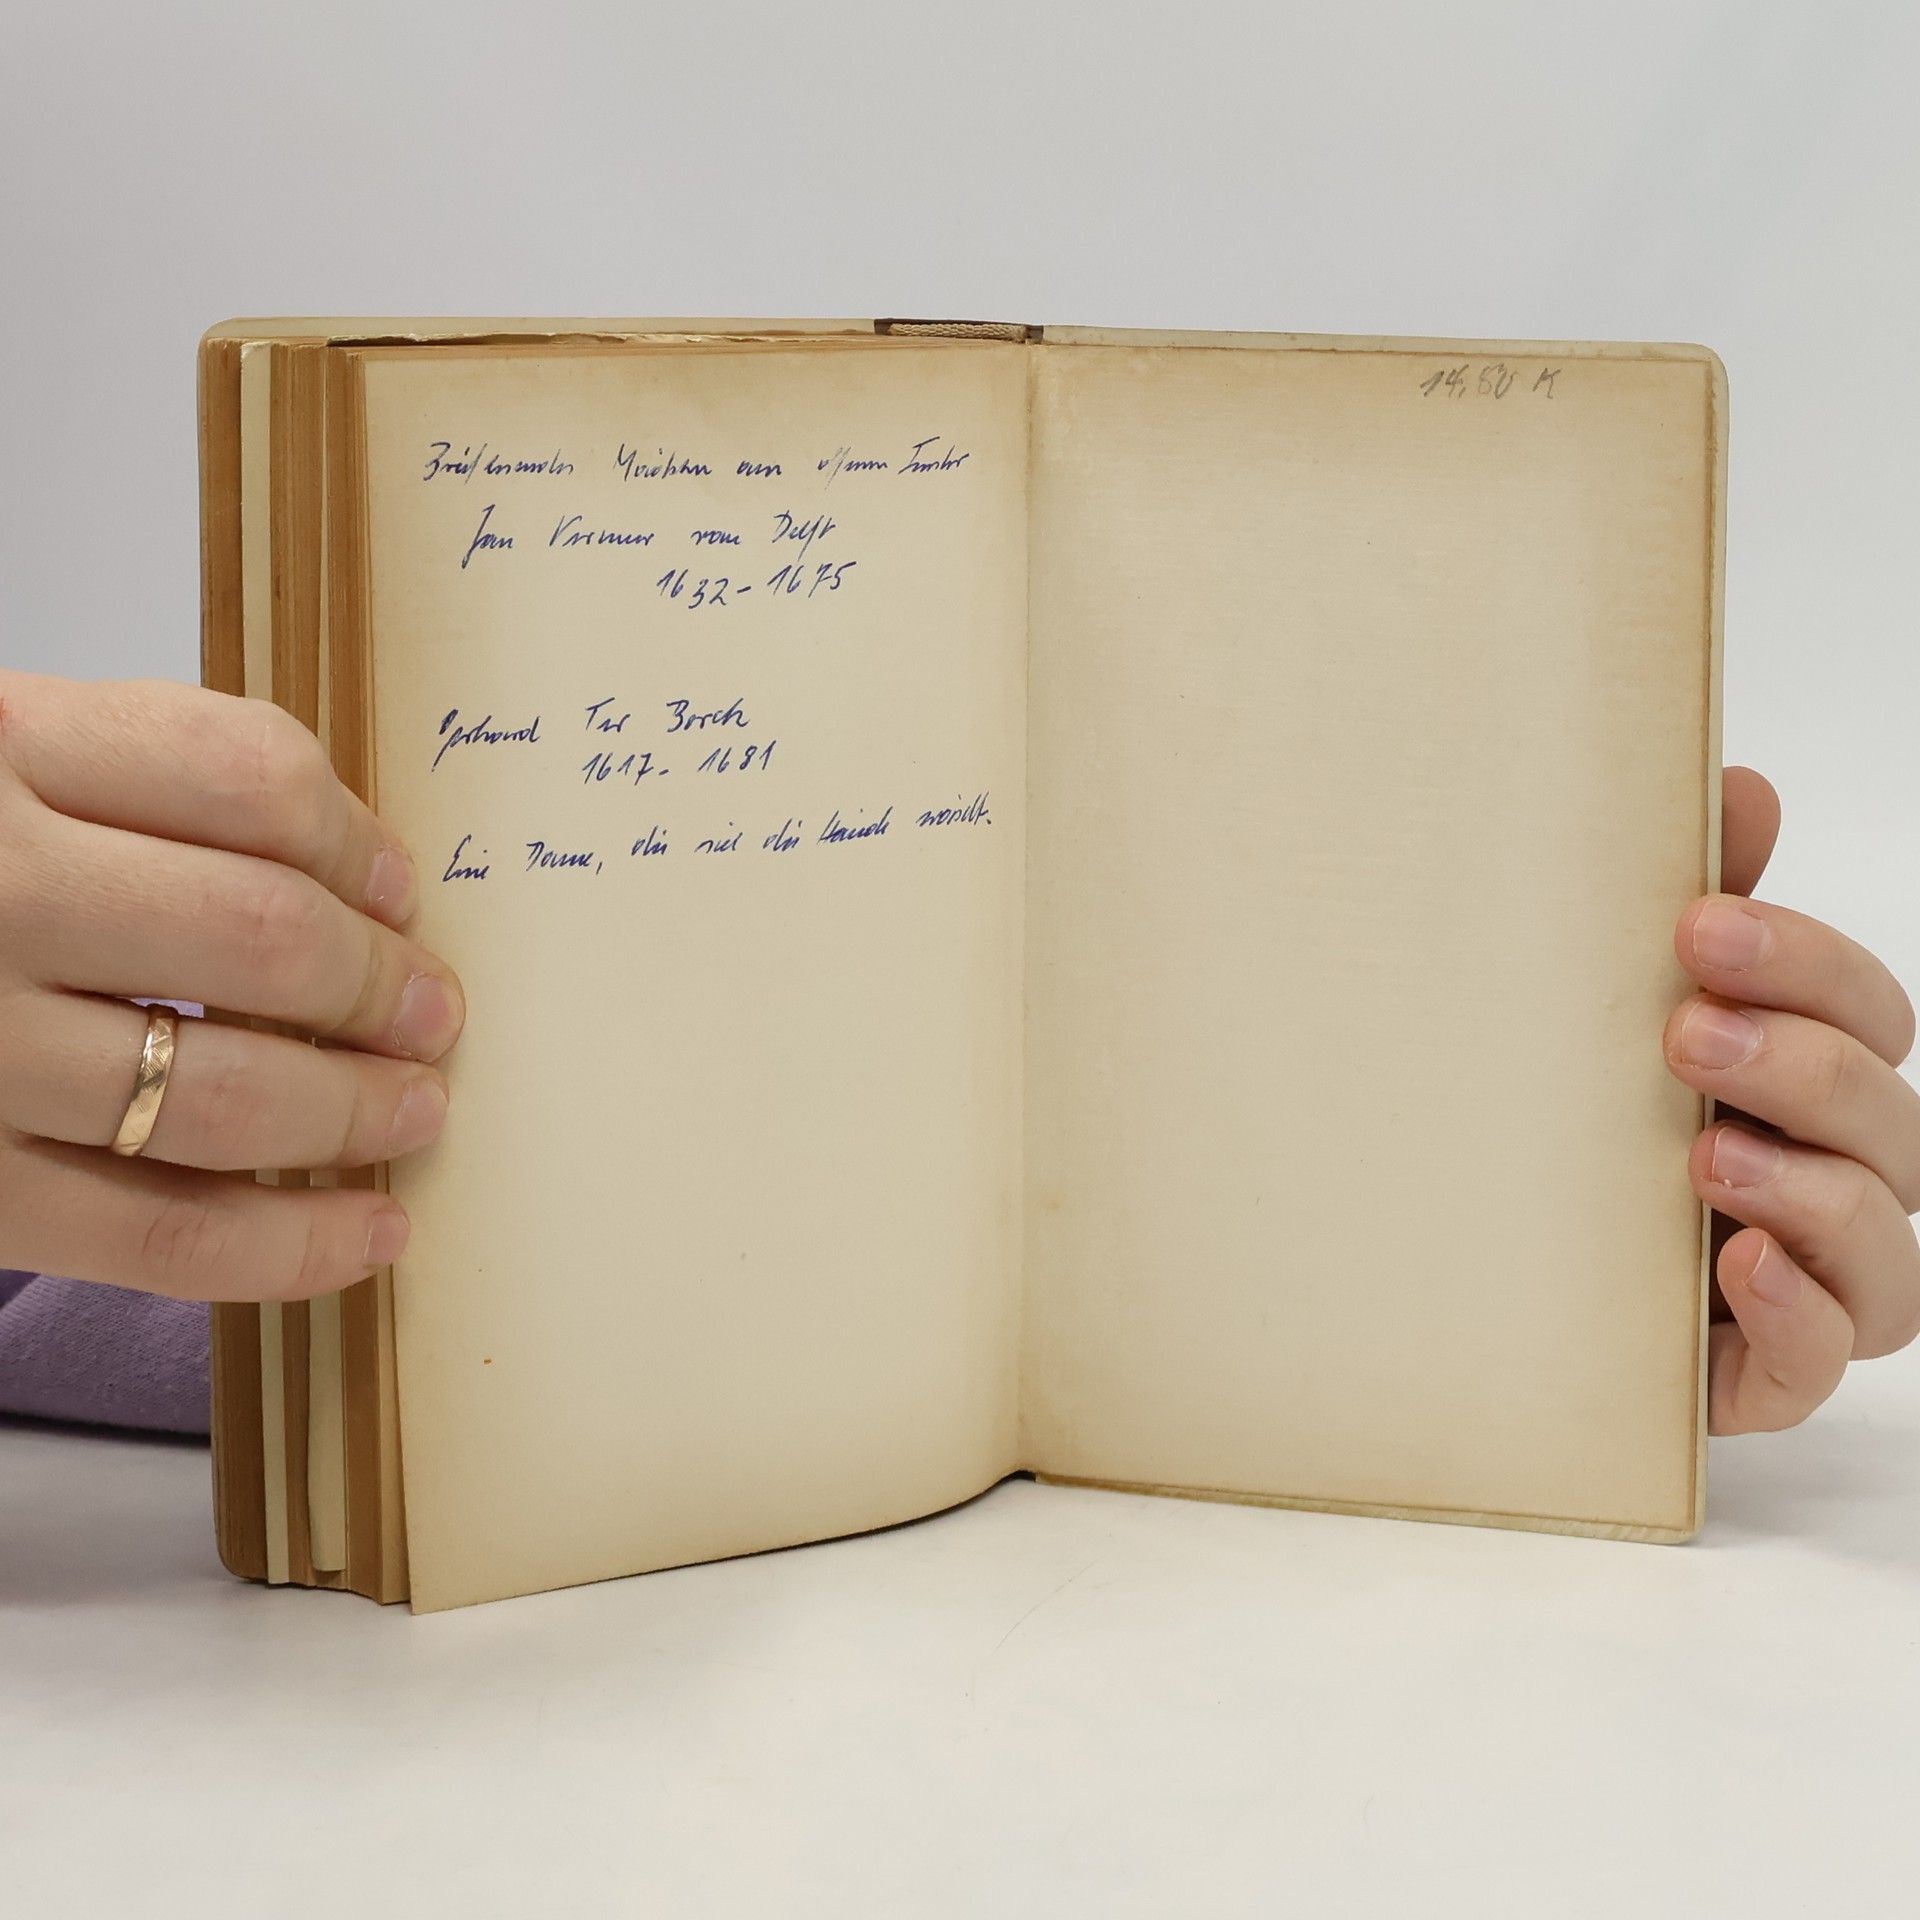 Brieflesendes Mädchen am offenen Fenster
Jan Vermeer van Delft
1632-1675
Gerhard Ter Borch
1617- 1681
Eine Dame, die sich die Hände wäscht.
14,80 K